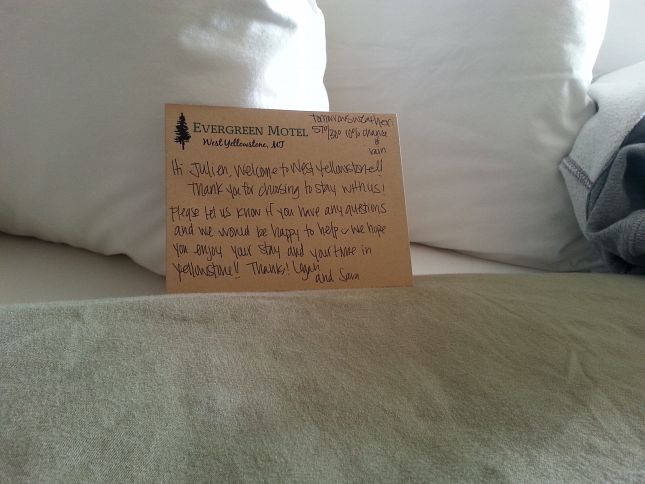 EVERGREEN MOTEL
West Yellowstone, MT
Tomorrows weather
57°/30° 10% chance
of
rain
Hi Julien, Welcome to West Yellowstone!!
Thank you for choosing to stay with us!
Please let us know if you have any questions
and we would be happy to help we hope
you enjoy your stay and your time in
Yellowstone!! Thanks!
and Sara